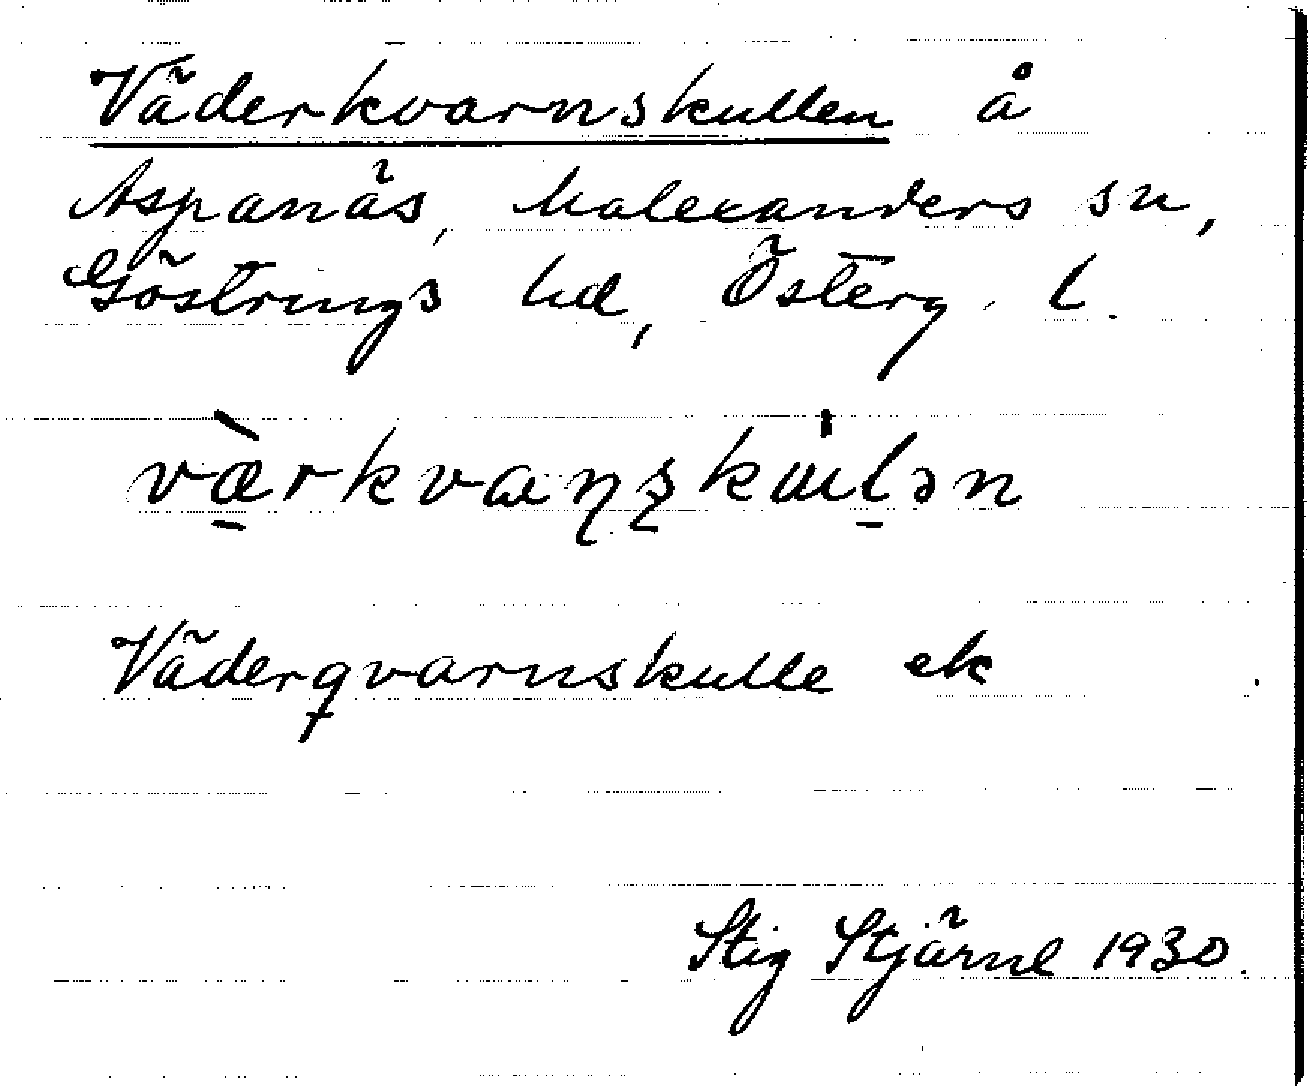 Väderkvarnskullen å
Aspanäs, Malexanders sn,
Göstrings hd, Österg. l.
væ̠̀rkvaɳʂkɯ̍l̠ən
Väderqvarnskulle ek
Stig Stjärne 1930.